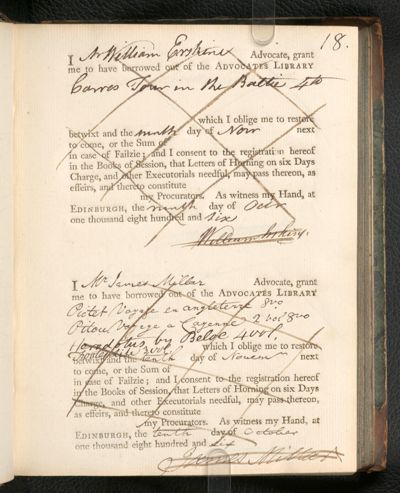 18.
I Mr William Erskine Advocate, grant
me to have borrowed out of the ADVOCATES LIBRARY
Carres Tour in the Baltic 4to
which I oblige me to restore
betwixt and the ninth day of Novr next
to come, or the Sum of
in case of Failzie; and I consent to the registration hereof
in the Books of Session, that Letters of Horning on six Days
Charge, and other Executorials needful, may pass thereon, as
effeirs, and thereto constitute
my Procurators. As witness my Hand, at
EDINBURGH, the ninth day of Octr
one thousand eight hundred and six
William Erskine.
I Mr James Millar Advocate, grant
me to have borrowed out of the ADVOCATES LIBRARY
Pictet Voyage en angleterre 8vo
Pitou Voyage a Cayenne 2 vol 8vo
Herodotus by Beloe 4 vol.
which I oblige me to restore
betwixt and the tenth day of Novemr next
to come, or the Sum of
in case of Failzie; and I consent to the registration hereof
in the Books of Session, that Letters of Horning on six Days
Charge, and other Executorials needful, may pass thereon,
as effeirs, and thereto constitute
my Procurators. As witness my Hand, at
EDINBURGH, the tenth day of October
one thousand eight hundred and six
James Millar